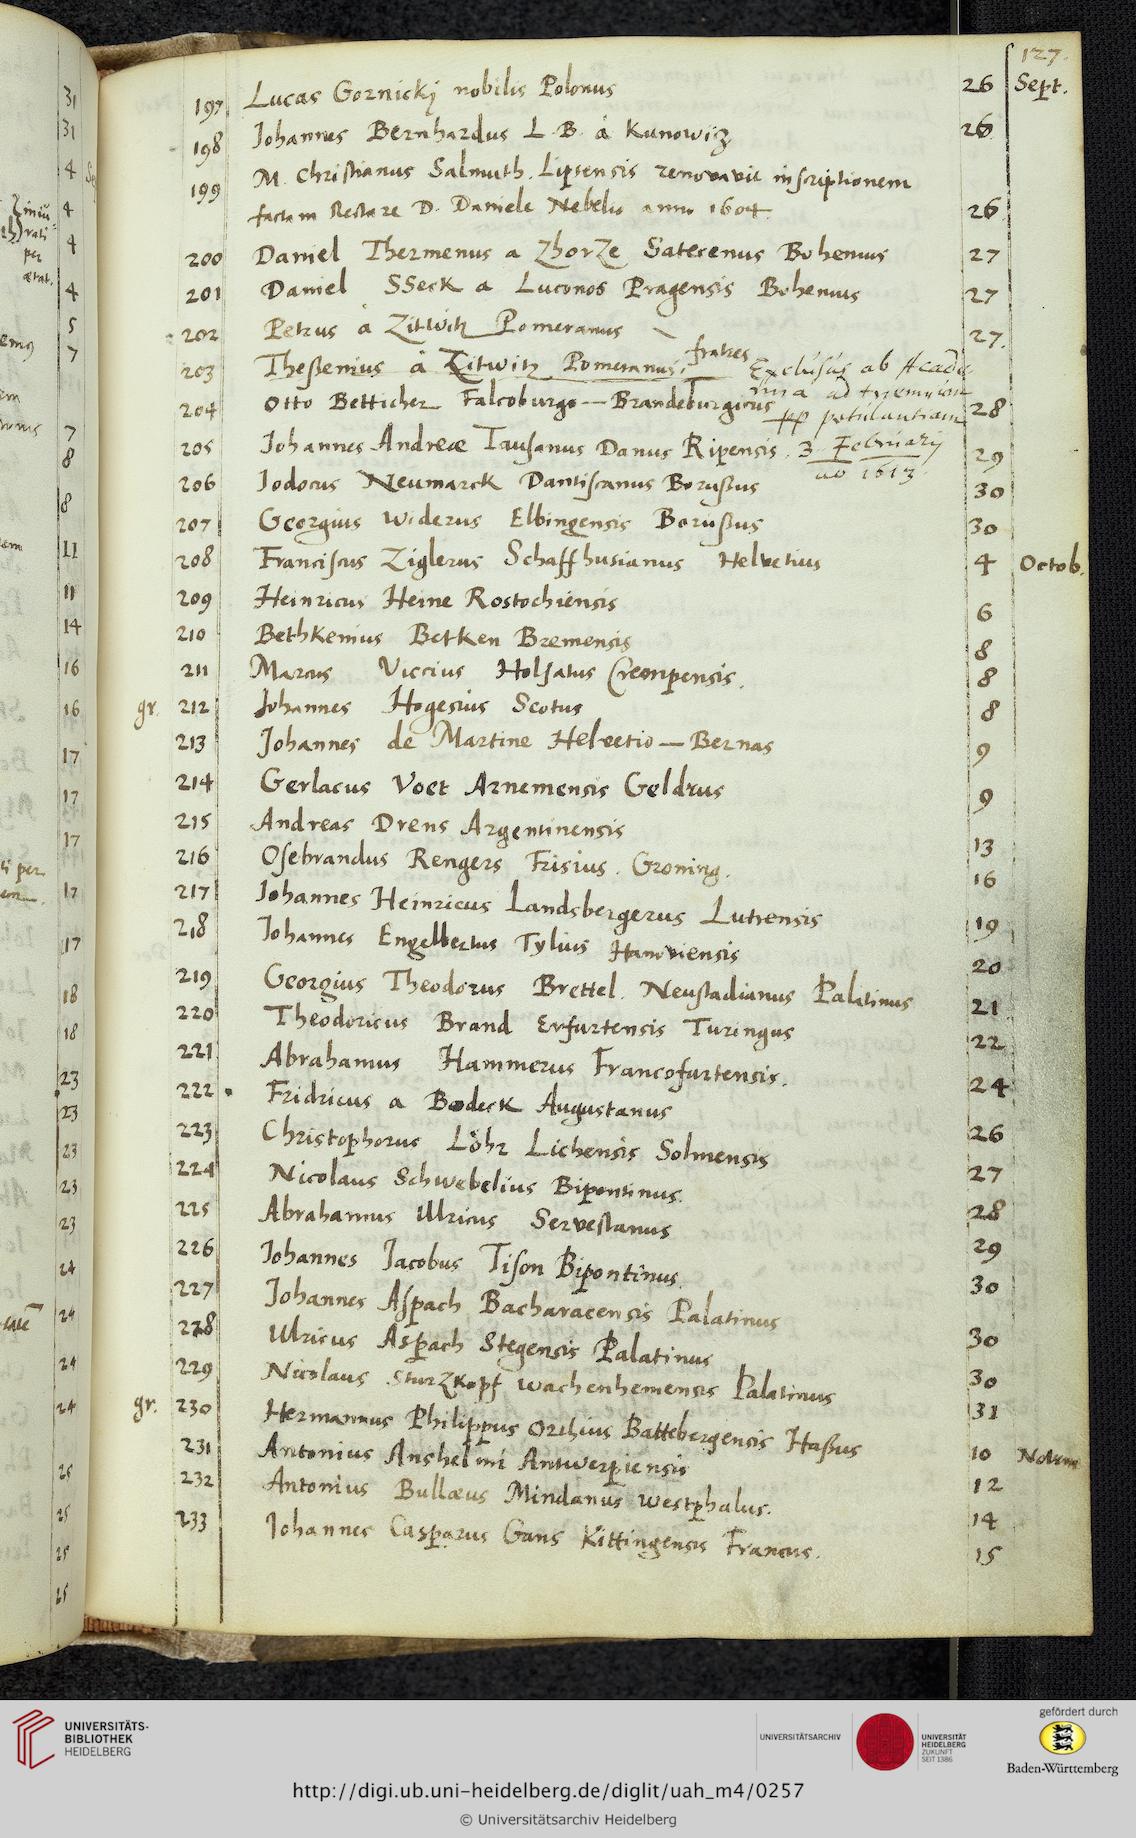 127.
197 Lucas Gornickj nobilis Polonus 26 Sept.
198 Johannes Bernhardus L. B. à Kunowiz 26
199 M. Christianus Salmuth. Lipsensis renovavit inscriptionem
factam Rectore D. Daniele Nebelio anno 1604. 26
200 Daniel Thermenus a Zhorze Satecenus Bohemus 27
201 Daniel SSeck a Luconos Pragensis Bohemus 27
202 Petrus à Zitwitz Pomeranus 27.
203 Theßenius à Zitwitz Pomeranus, fratres
Exclusus ab Acade
mia ad
204 Otto Betticher Falcoburgo-Brandeburgicus 28
petulantiam
205 Johannes Andreæ Tausanus Danus Ripensis. 29
3 Februarij
ao 1613
206 Jodocus Neumarck Dantiscanus Borußus 30
207 Georgius Widerus Elbingensis Borußus 30
208 Franciscus Ziglerus Schaffhusianus Helvetius 4 Octob.
209 Heinricus Heine Rostochiensis 6
210 Bethkenius Betken Bremensis 8
211 Marcus Viccius Holsatus Crempensis. 8
gr. 212 Johannes Hogesius Scotus 8
213 Johannes de Martine Helvetio-Bernas 9
214 Gerlacus Voet Arnemensis Geldrus 9
215 Andreas Drens Argentinensis 13
216 Osebrandus Rengers Frisius. Groning. 16
217 Johannes Heinricus Landsbergerus Lutrensis 19
218 Johannes Engelbertus Tylius Hanoviensis 20
219 Georgius Theodorus Brettel. Neustadianus Palatinus 21
220 Theodoricus Brand Erfurtensis Turingus 22
221 Abrahamus Hammerus Francofurtensis. 24
222 Fridricus a Bodeck Augustanus 26
223 Christophorus Löhr Lichensis Solmensis 27
224 Nicolaus Schwebelius Bipontinus. 28
225 Abrahamus Ulricus Servestanus 29
226 Johannes Jacobus Tison Bipontinus. 30
227 Johannes Aspach Bacharacensis Palatinus 30
228 Ulricus Aspach Stegensis Palatinus 30
229 Nicolaus Sturzkopf Wachenhemensis Palatinus 31
gr. 230 Hermannus Philippus Orthius Battebergensis Haßus 10 Novem
231 Antonius Anshelmi Antwerpiensis 12
232 Antonius Bullæus Mindanus Westphalus. 14
233 Johannes Casparus Gans Kittingensis Francus. 15
UNIVERSITÄTS-
BIBLIOTHEK
HEIDELBERG
UNIVERSITÄTSARCHIV
UNIVERSITÄT
HEIDELBERG
ZUKUNFT
SEIT 1386
gefördert durch
Baden-Württemberg
http://digi.ub.uni-heidelberg.de/diglit/uah_m4/0257
© Universitätsarchiv Heidelberg